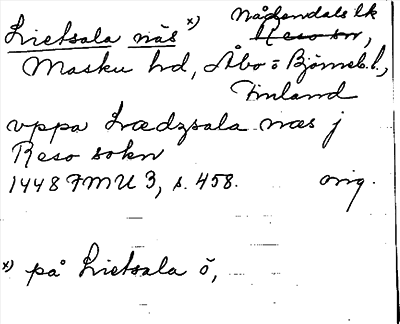 Lietsala näs x) Nådendals lk
Reso sn,
Masku hd, Åbo o Björneb. l.,
Finland
vppa Lædzsala næs j
Reso sokn
1448 FMU 3, s. 458. orig.
x) på Lietsala ö,